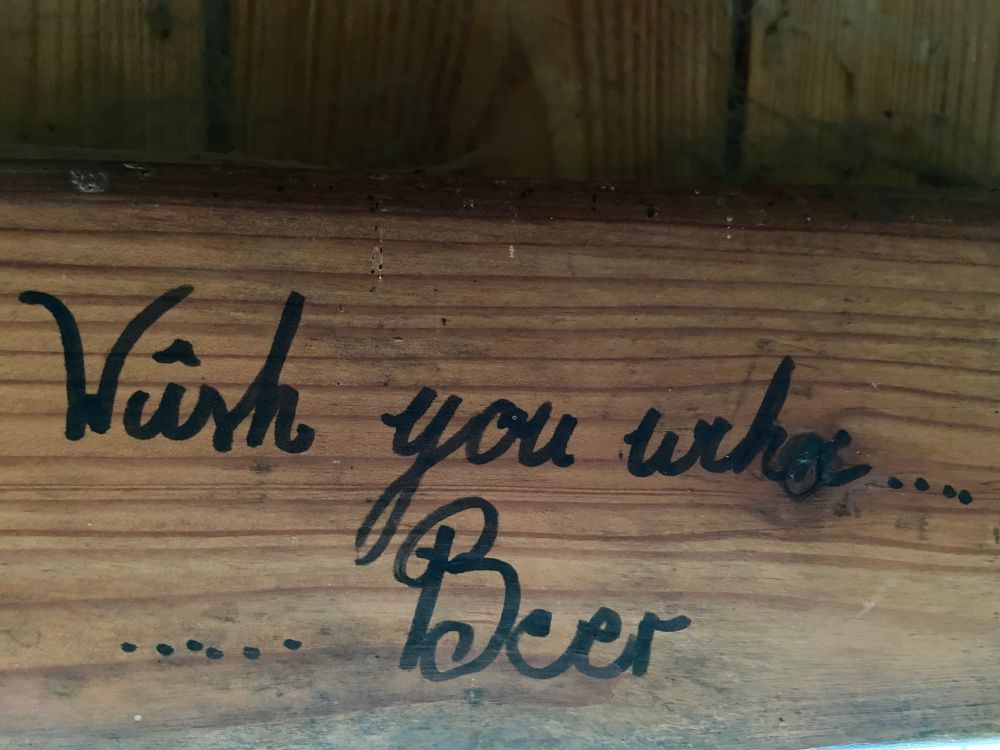 Wish you who ....
...... Beer